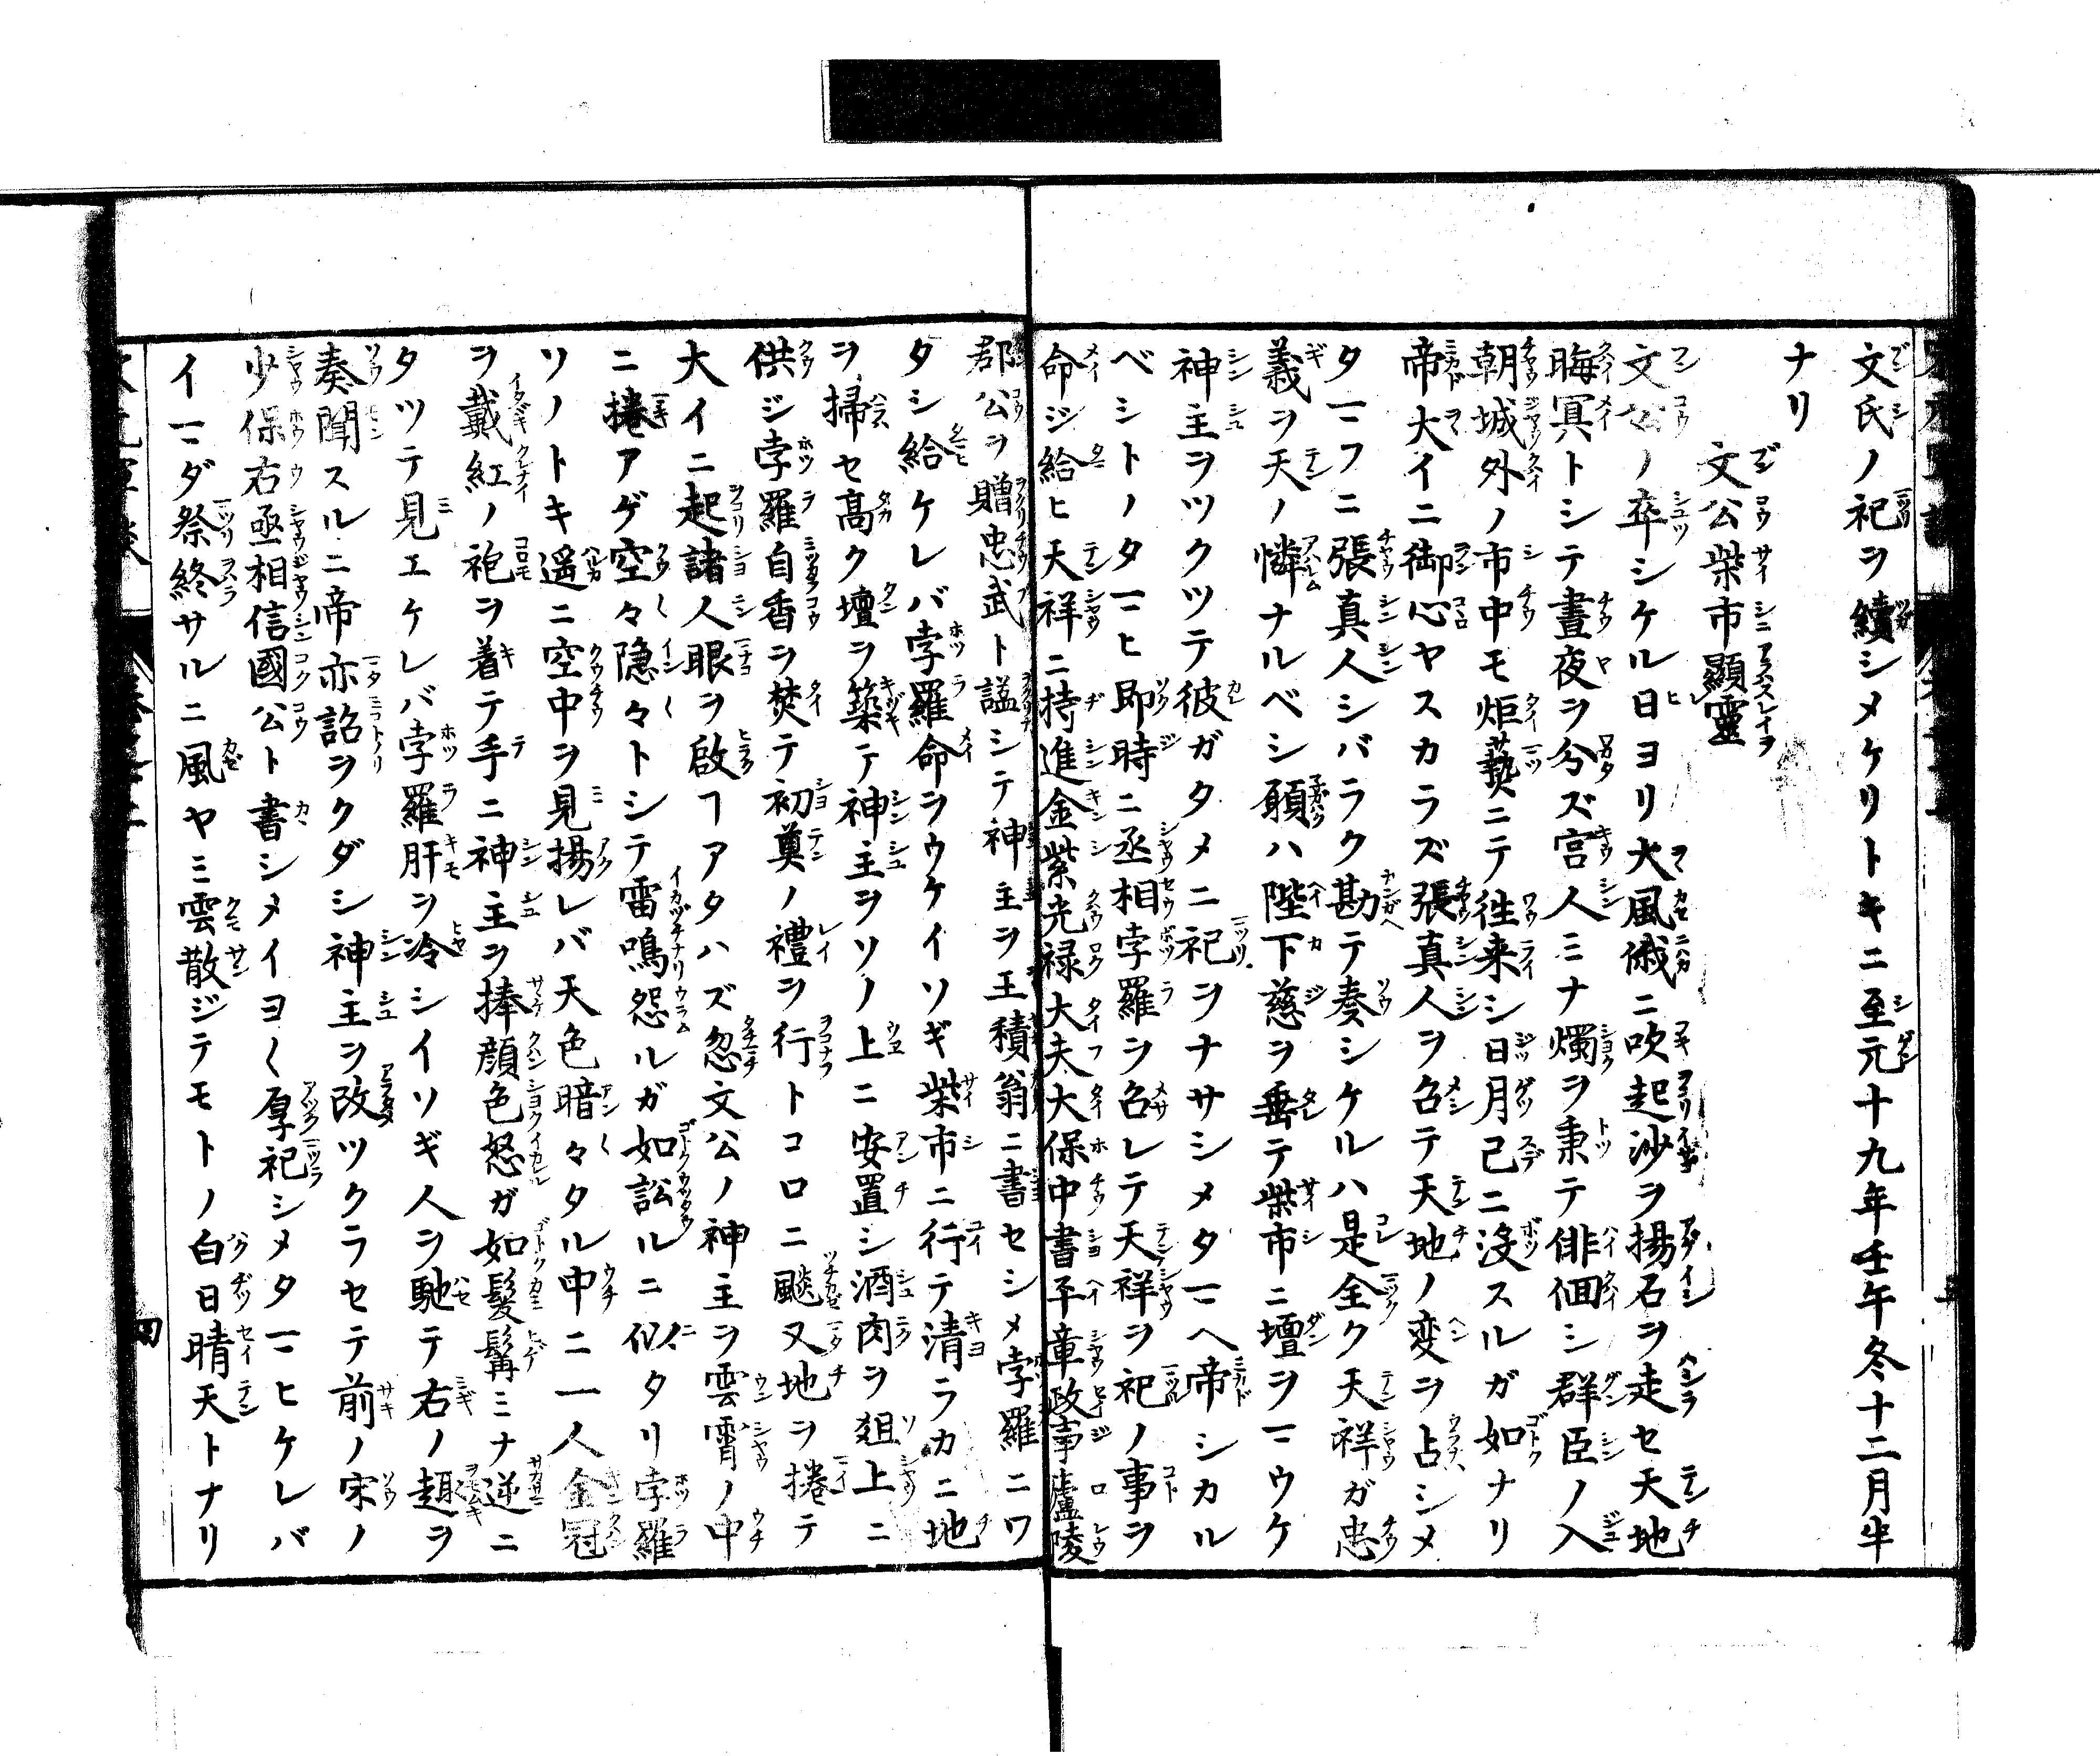 文氏ノ祀ヲ續シメケリトキニ至元十九年壬午冬十二月半
ナリ
文公柴市顯靈
文公ノ卒シケル日ヨリ大風俄ニ吹起沙ヲ揚石ヲ走セ天地
晦冥トシテ晝夜ヲ分ズ宮人ミナ燭ヲ秉テ俳徊シ群臣ノ入
朝城外ノ市中モ炬爇ニテ徃来シ日月己ニ沒スルガ如ナリ
帝大イニ御心ヤスカラズ張真人ヲ召テ天地ノ変ヲ占シメ
タマフニ張真人シバラク勘テ奏シケルハ是全ク天祥ガ忠
義ヲ天ノ憐ナルベシ願ハ陛下慈ヲ垂テ柴市ニ壇ヲマウケ
神主ヲツクツテ彼ガタメニ祀ヲナサシメタマヘ帝シカル
ベシトノタマヒ即時ニ丞相孛羅ヲ召レテ天祥ヲ祀ノ事ヲ
命ジ給ヒ天祥ニ持進金紫光禄大夫大保中書平章政事廬陵
郡公ヲ贈忠武ト謚シテ神主ヲ王積翁ニ書セシメ孛羅ニワ
タシ給ケレバ孛羅命ヲウケイソギ柴市ニ行テ清ラカニ地
ヲ掃セ高ク壇ヲ築テ神主ヲソノ上ニ安置シ酒肉ヲ俎上ニ
供ジ孛羅自香ヲ焚テ初奠ノ禮ヲ行トコロニ颷又地ヲ捲テ
大イニ起諸人眼ヲ啟ヿアタハズ忽文公ノ神主ヲ雲霄ノ中
ニ捲アゲ空々隠々トシテ雷鳴怨ルガ如訟ルニ似タリ孛羅
ソノトキ遥ニ空中ヲ見揚レバ天色暗々タル中ニ一人金冠
ヲ戴紅ノ袍ヲ着テ手ニ神主ヲ捧顔色怒ガ如髮髯ミナ逆ニ
タツテ見エケレバ孛羅肝ヲ冷シイソギ人ヲ馳テ右ノ趣ヲ
奏聞スルニ帝亦詔ヲクダシ神主ヲ改ツクラセテ前ノ宋ノ
少保右丞相信國公ト書シメイヨ〱厚祀シメタマヒケレバ
イマダ祭終サルニ風ヤミ雲散ジテモトノ白日晴天トナリ
四